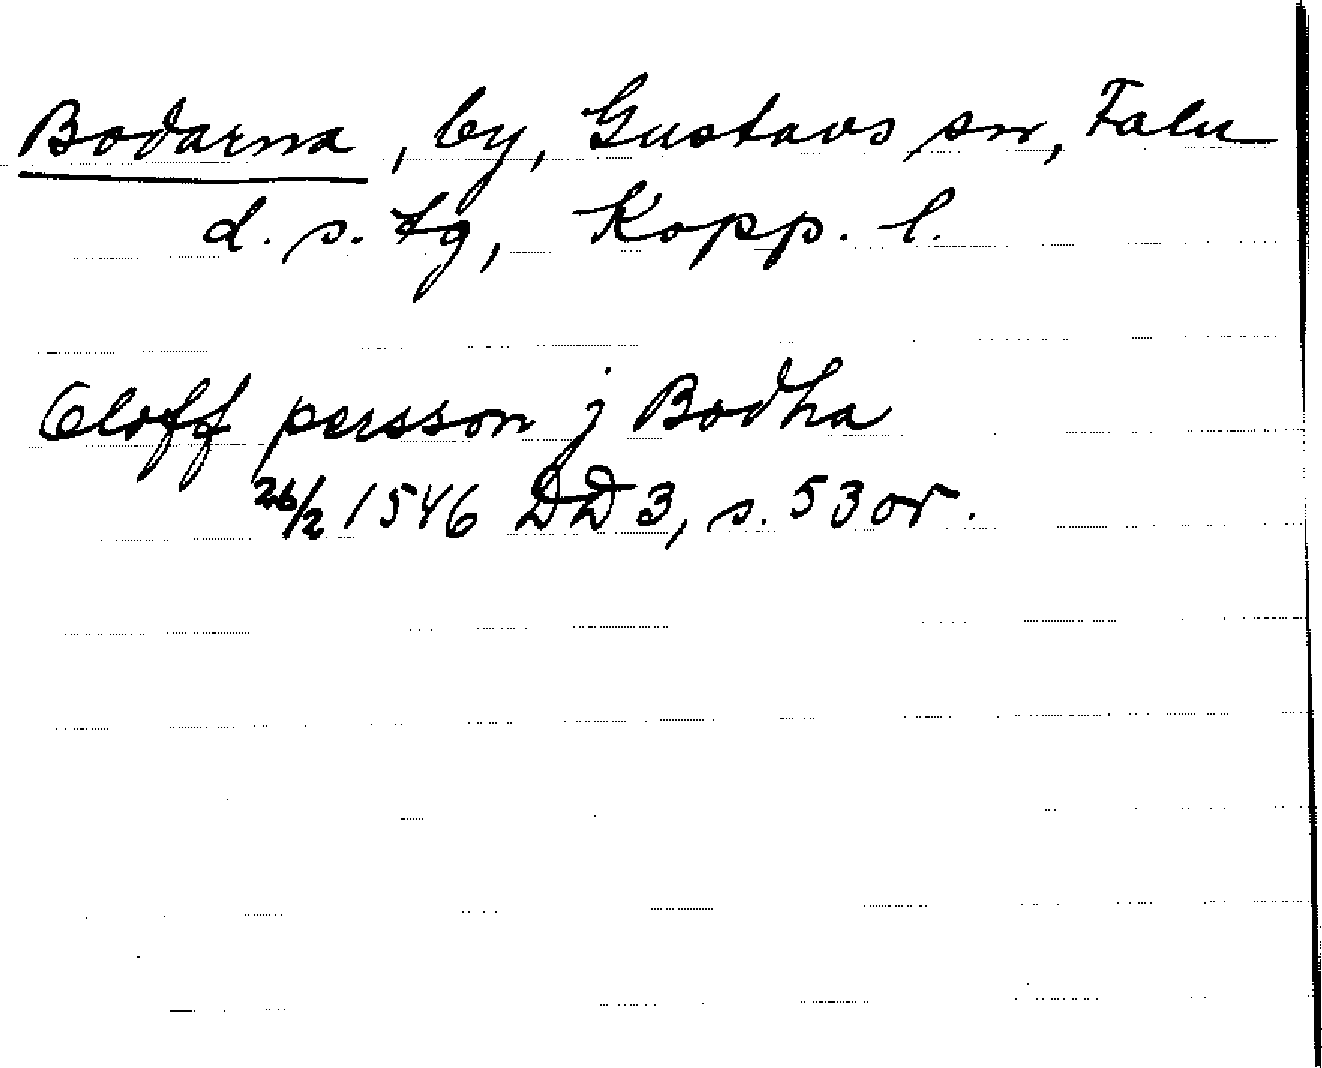 Bodarna, by, Gustavs sn, Falu
d. s. tg, Kopp. l.
Oloff persson j Bodha
26/2 1546 DD 3, s. 53 or.